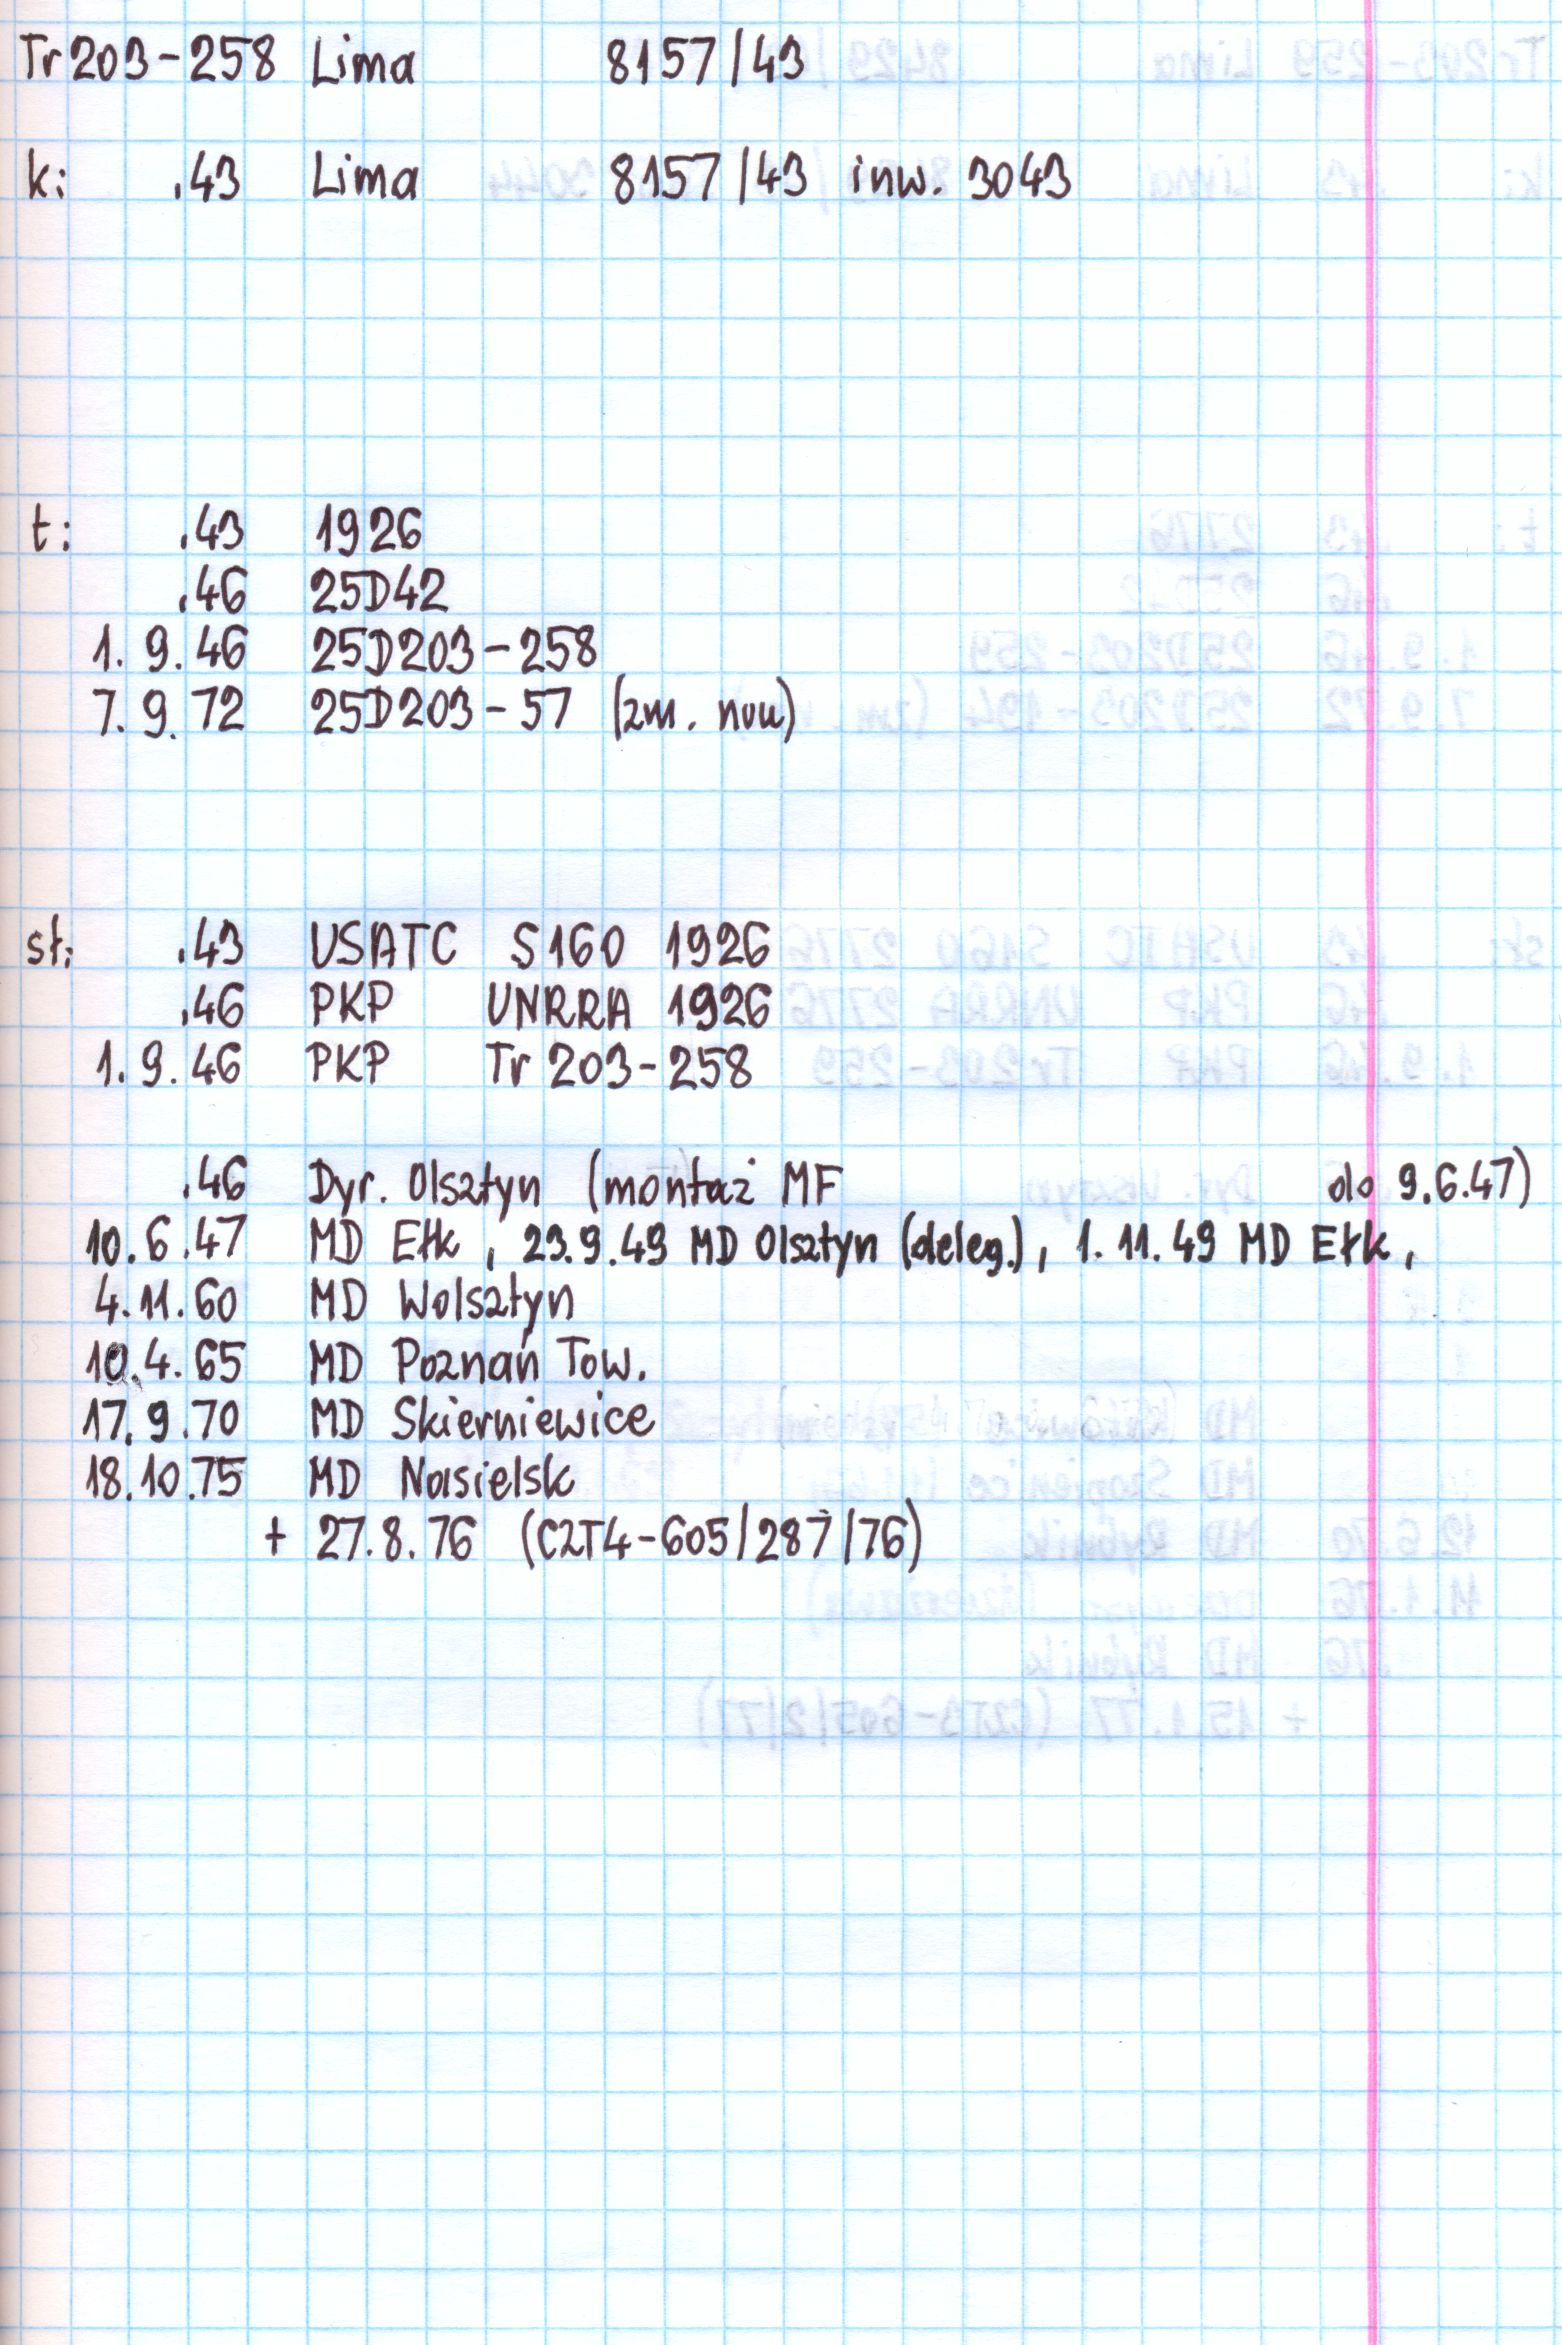 Tr203-258 Lima 8157/43
k: .43 Lima 8157/43 inw. 3043
t: .43 1926
.46 25D42
1.9.46 25D203-258
7.9.72 25D203-57 (zm. nru)
st: .43 USATC S160 1926
.46 PKP UNRRA 1926
1.9.46 PKP Tr203-258
.46 Dyr. Olsztyn (montaż MF do 9.6.47)
10.6.47 MD Ełk, 29.9.49 MD Olsztyn (deleg.), 1.11.49 MD Ełk,
4.11.60 MD Wolsztyn
10.4.65 MD Poznań Tow.
17.9.70 MD Skierniewice
18.10.75 MD Nasielsk
+ 27.8.76 (CZT4-605/287/76)